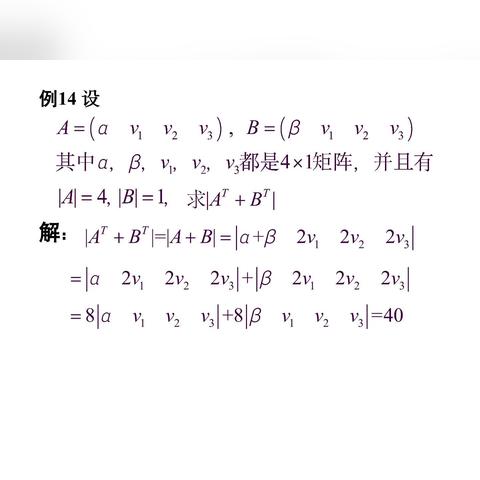 例14 设
A=(α v₁ v₂ v₃), B=(β v₁ v₂ v₃)
其中α, β, v₁, v₂, v₃都是4×1矩阵, 并且有
|A|=4, |B|=1, 求|Aᵀ+Bᵀ|
解: |Aᵀ+Bᵀ|=|A+B|=|α+β 2v₁ 2v₂ 2v₃|
=|α 2v₁ 2v₂ 2v₃|+|β 2v₁ 2v₂ 2v₃|
=8|α v₁ v₂ v₃|+8|β v₁ v₂ v₃|=40